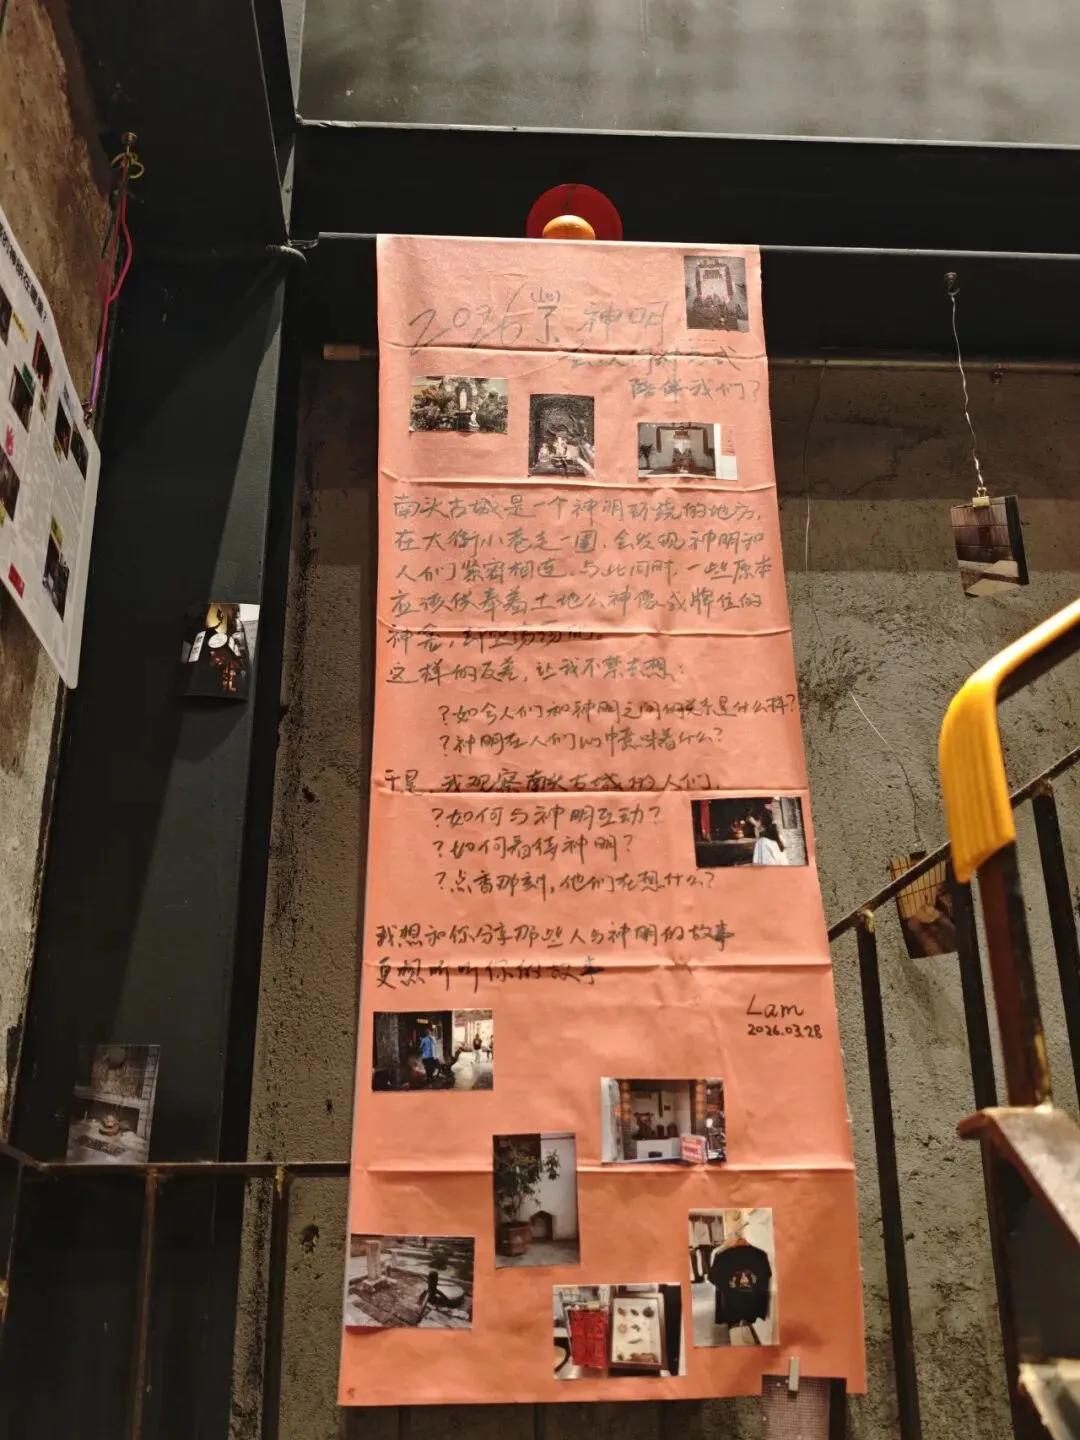 2026了(le) 神明
会以何种方式
陪伴我们？
南头古城是一个神明环绕的地方，
在大街小巷走一圈，会发现神明和
人们紧密相连，与此同时，一些原本
应该供奉着土地公神像或牌位的
神龛，却空荡荡的。
这样的反差，让我不禁去想：
？如今人们和神明之间的关系是什么样？
？神明在人们心中意味着什么？
于是，我观察南头古城的人们，
？如何与神明互动？
？如何看待神明？
？点香那刻，他们在想什么？
我想和你分享那些人与神明的故事
更想听听你的故事
Lam
2026.03.28